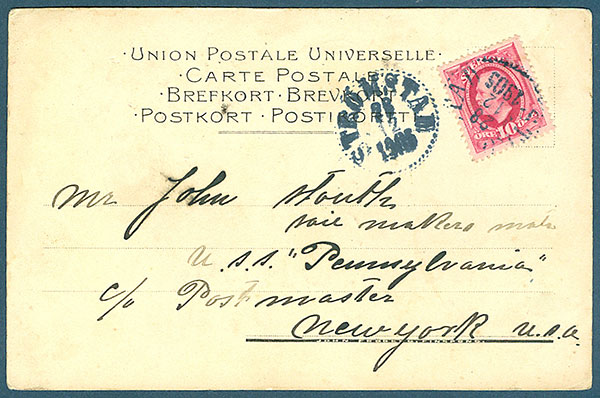 · UNION POSTALE UNIVERSELLE ·
· CARTE POSTALE
· BREFKORT · BREV
POSTKORT · POSTIKORTTI
STRÖMSTAD
28
12
1905
1905
12
28
ÖRE 10
Mr John Stouth
saie makers mate
U.S.S. "Pennsylvania"
c/o Postmaster
New york U.S.a.